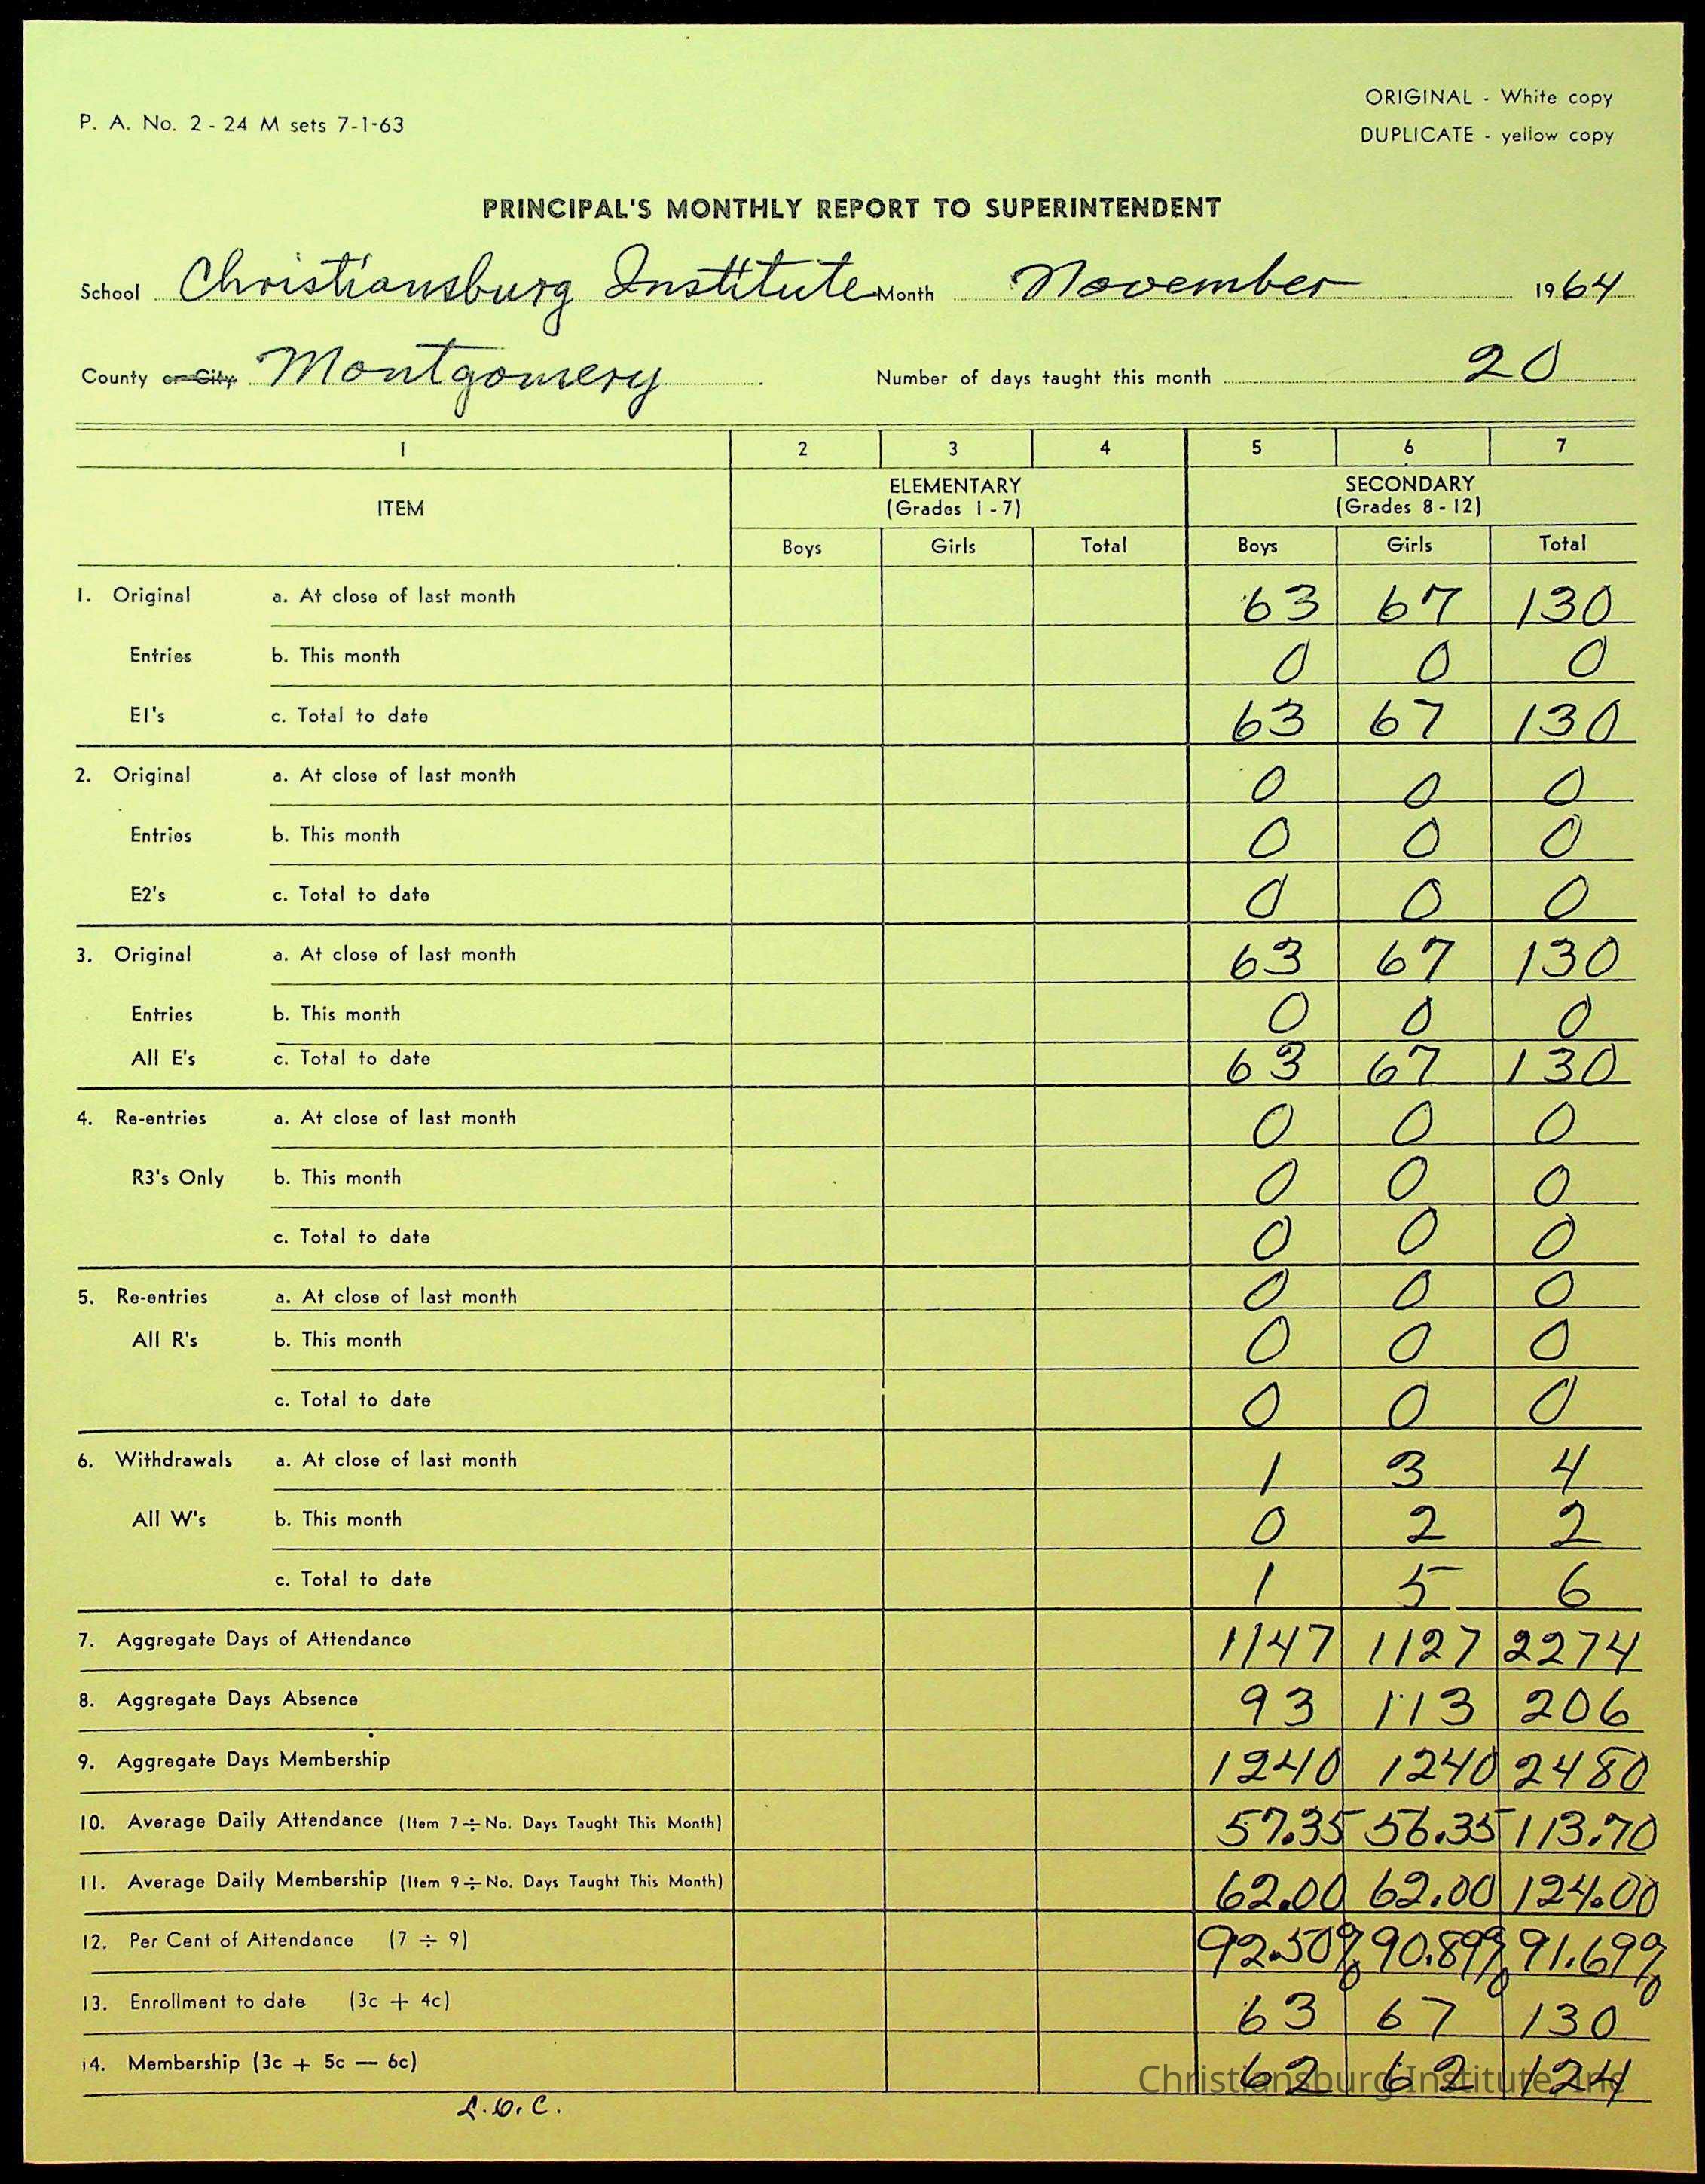 P. A. No. 2 - 24 M sets 7-1-63
ORIGINAL - White copy
DUPLICATE - yellow copy
PRINCIPAL'S MONTHLY REPORT TO SUPERINTENDENT
School Christiansburg Institute Month November 1964
County or City Montgomery Number of days taught this month 20
1 2 3 4 5 6 7
ITEM ELEMENTARY (Grades 1 - 7) SECONDARY (Grades 8 - 12)
Boys Girls Total Boys Girls Total
1. Original a. At close of last month 63 67 130
Entries b. This month 0 0 0
E1's c. Total to date 63 67 130
2. Original a. At close of last month 0 0 0
Entries b. This month 0 0 0
E2's c. Total to date 0 0 0
3. Original a. At close of last month 63 67 130
Entries b. This month 0 0 0
All E's c. Total to date 63 67 130
4. Re-entries a. At close of last month 0 0 0
R3's Only b. This month 0 0 0
c. Total to date 0 0 0
5. Re-entries a. At close of last month 0 0 0
All R's b. This month 0 0 0
c. Total to date 0 0 0
6. Withdrawals a. At close of last month 1 3 4
All W's b. This month 0 2 2
c. Total to date 1 5 6
7. Aggregate Days of Attendance 1147 1127 2274
8. Aggregate Days Absence 93 113 206
9. Aggregate Days Membership 1240 1240 2480
10. Average Daily Attendance (Item 7 ÷ No. Days Taught This Month) 57.35 56.35 113.70
11. Average Daily Membership (Item 9 ÷ No. Days Taught This Month) 62.00 62.00 124.00
12. Per Cent of Attendance (7 ÷ 9) 92.50% 90.89% 91.69%
13. Enrollment to date (3c + 4c) 63 67 130
14. Membership (3c + 5c — 6c) 62 62 124
Christiansburg Institute, Inc